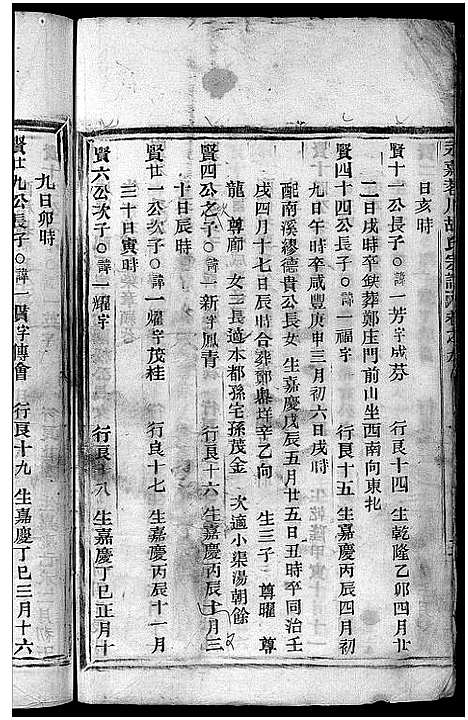 永嘉蓬川胡氏宗譜
日亥時
賢十一公長子〇諱一芳字成芬 行良十四 生乾隆乙卯四月廿
二日戌時卒缺葬鄭庄門前山坐西南向東北
賢四十四公長子〇諱一福字 行良十五 生嘉慶丙辰四月初
九日午時卒咸豐庚申三月初六日戌時
配南溪繆德貴公長女 生嘉慶戊辰五月廿五日丑時卒同治壬
戌四月十七日辰時合葬鄭鼻垟辛乙向 生三子 尊曜 尊
龍 尊廊 女三長適本都孫宅孫茂金 次適小渠湯朝餘
賢四公之子〇諱一新字鳳青 行良十六 生嘉慶丙辰十月三
十日辰時
賢廿一公次子〇諱一燿字茂桂 行良十七 生嘉慶丙辰十一月
三十日寅時
賢六公次子〇諱一耀字 行良十八 生嘉慶丁巳正月十
九日卯時
賢廿九公長子〇諱一貫字傳會 行良十九 生嘉慶丁巳三月十六